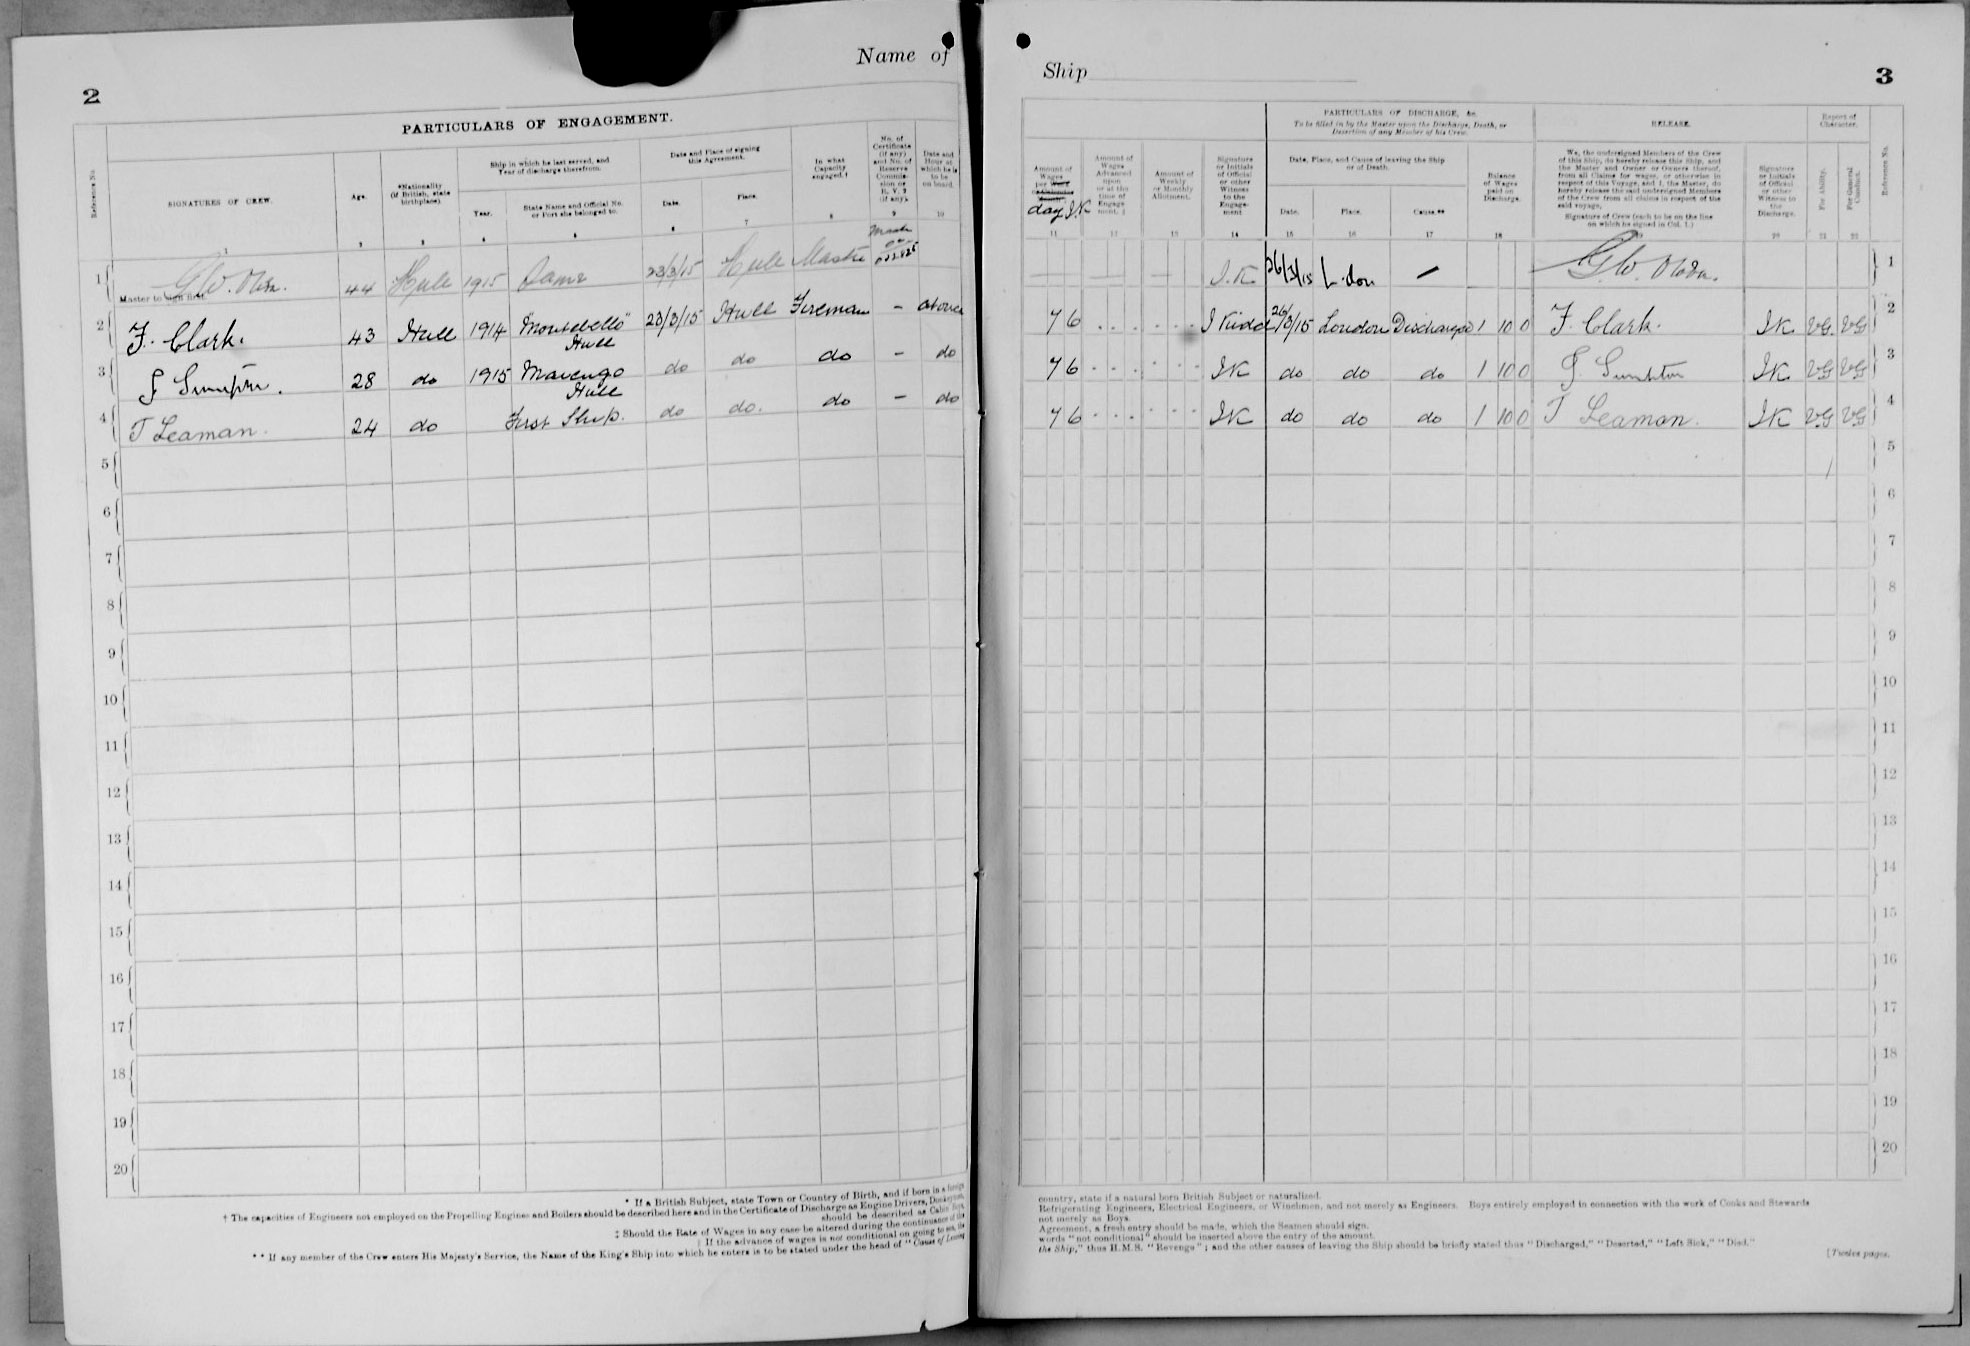 Name of
2
PARTICULARS OF ENGAGEMENT.
Reference No.
SIGNATURES OF CREW.
Age.
*Nationality
(if British, state
birthplace).
Ship in which he last served, and
Year of discharge therefrom.
Year.
State Name and Official No.
or Port she belonged to.
Date and Place of signing
this Agreement.
Date.
Place.
In what
Capacity
engaged.†
No. of
Certificate
(if any)
and No. of
Reserve
Commis-
sion or
R. V 2
(if any).
Date and
Hour at
which he is
to be
on board.
1 2 3 4 5 6 7 8 9 10
1 G.W. 44 Hull 1915 Same 23/3/15 Hull Master
Master to sign first.
2 F. Clark. 43 Hull 1914 "Montebello" Hull 23/3/15 Hull Fireman – at once
3 28 do 1915 Marengo Hull do do do – do
4 T Leaman. 24 do First Ship. do do. do – do
5
6
7
8
9
10
11
12
13
14
15
16
17
18
19
20
* If a British Subject, state Town or Country of Birth, and if born in a foreign
† The capacities of Engineers not employed on the Propelling Engines and Boilers should be described here and in the Certificate of Discharge as Engine Drivers, Donkeymen,
should be described as Cabin Boys,
‡ Should the Rate of Wages in any case be altered during the continuance of this
| If the advance of wages is not conditional on going to sea, the
** If any member of the Crew enters His Majesty's Service, the Name of the King's Ship into which he enters is to be stated under the head of "Cause of Leaving
Ship
3
PARTICULARS OF DISCHARGE, &c.
To be filled in by the Master upon the Discharge, Death, or
Desertion of any Member of his Crew.
RELEASE.
Report of
Character.
Amount of
Wages
per
day J.K
Amount of
Wages
Advanced
upon
or at the
time of
Engage-
ment.
Amount of
Weekly
or Monthly
Allotment.
Signature
or Initials
of Official
or other
Witness
to the
Engage-
ment
Date, Place, and Cause of leaving the Ship
or of Death.
Date.
Place.
Cause.**
Balance
of Wages
paid on
Discharge.
We, the undersigned Members of the Crew
of this Ship, do hereby release this Ship, and
the Master and Owner or Owners thereof,
from all Claims for wages, or otherwise in
respect of this Voyage, and I, the Master, do
hereby release the said undersigned Members
of the Crew from all claims in respect of the
said voyage,
Signature of Crew (each to be on the line
on which he signed in Col. 1.)
Signature
or Initials
of Official
or other
Witness to
the
Discharge.
For Ability.
For General
Conduct.
Reference No.
11 12 13 14 15 16 17 18 19 20 21 22
J.K 26/3/15 London – G.W. 1
7 6 J Kidd 26/3/15 London Discharged 1 10 0 F. Clark. JK VG VG 2
7 6 JK do do do 1 10 0 JK VG VG 3
7 6 JK do do do 1 10 0 T Leaman. JK VG VG 4
5
6
7
8
9
10
11
12
13
14
15
16
17
18
19
20
country, state if a natural born British Subject or naturalized.
Refrigerating Engineers, Electrical Engineers, or Winchmen, and not merely as Engineers. Boys entirely employed in connection with the work of Cooks and Stewards
not merely as Boys.
Agreement, a fresh entry should be made, which the Seamen should sign.
words "not conditional" should be inserted above the entry of the amount.
the Ship," thus H.M.S. "Revenge"; and the other causes of leaving the Ship should be briefly stated thus "Discharged," "Deserted," "Left Sick," "Died."
[Twelve pages.